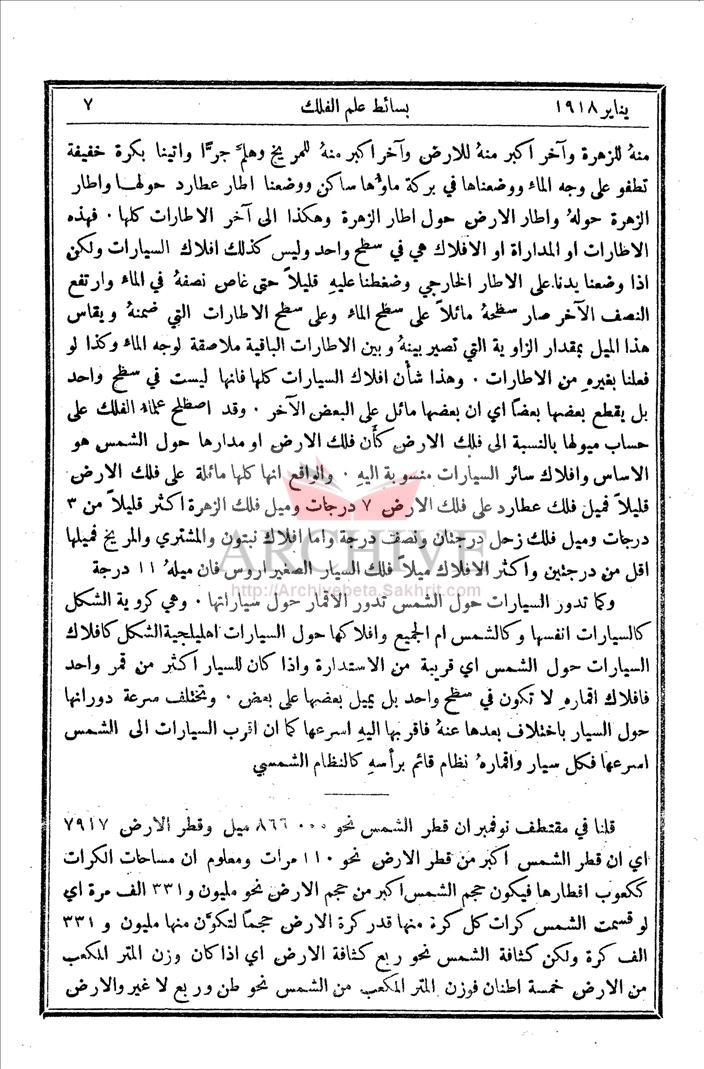 يناير ١٩١٨ بسائط علم الفلك ٧
منهُ للزهرة وآخر اكبر منهُ للارض وآخر اكبر منهُ للمريخ وهلمَّ جرًّا واتينا بكرة خفيفة
تطفو على وجه الماء ووضعناها في بركة ماؤها ساكن ووضعنا اطار عطارد حولها واطار
الزهرة حولهُ واطار الارض حول اطار الزهرة وهكذا الى آخر الاطارات كلها . فهذه
الاطارات او المداراة او الافلاك هي في سطح واحد وليس كذلك افلاك السيارات ولكن
اذا وضعنا يدنا على الاطار الخارجي وضغطنا عليهِ قليلاً حتى غاص نصفهُ في الماء وارتفع
النصف الآخر صار سطحهُ مائلاً على سطح الماء وعلى سطح الاطارات التي ضمنهُ ويقاس
هذا الميل بمقدار الزاوية التي تصير بينهُ وبين الاطارات الباقية ملاصقة لوجه الماء وكذا لو
فعلنا بغيرهِ من الاطارات . وهذا شأن افلاك السيارات كلها فانها ليست في سطح واحد
بل يقطع بعضها بعضاً اي ان بعضها مائل على البعض الآخر . وقد اصطلح علماء الفلك على
حساب ميولها بالنسبة الى فلك الارض كأن فلك الارض او مدارها حول الشمس هو
الاساس وافلاك سائر السيارات منسوبة اليهِ . والواقع انها كلها مائلة على فلك الارض
قليلاً فميل فلك عطارد على فلك الارض ٧ درجات وميل فلك الزهرة اكثر قليلاً من ٣
درجات وميل فلك زحل درجتان ونصف درجة واما افلاك نبتون والمشتري والمريخ فميلها
اقل من درجتين واكثر الافلاك ميلاً فلك السيار الصغير اروس فان ميلهُ ١١ درجة
وكما تدور السيارات حول الشمس تدور الاقمار حول سياراتها . وهي كروية الشكل
كالسيارات انفسها وكالشمس ام الجميع وافلاكها حول السيارات اهليلجية الشكل كافلاك
السيارات حول الشمس اي قريبة من الاستدارة واذا كان للسيار اكثر من قمر واحد
فافلاك اقمارهِ لا تكون في سطح واحد بل يميل بعضها على بعض . وتختلف سرعة دورانها
حول السيار باختلاف بعدها عنهُ فاقربها اليهِ اسرعها كما ان اقرب السيارات الى الشمس
اسرعها فكل سيار واقمارهُ نظام قائم برأسهِ كالنظام الشمسي
قلنا في مقتطف نوفمبر ان قطر الشمس نحو ٨٦٦٠٠٠ ميل وقطر الارض ٧٩١٧
اي ان قطر الشمس اكبر من قطر الارض نحو ١١٠ مرات ومعلوم ان مساحات الكرات
ككعوب اقطارها فيكون حجم الشمس اكبر من حجم الارض نحو مليون و٣٣١ الف مرة اي
لو قسمت الشمس كرات كل كرة منها قدر كرة الارض حجماً لتكوَّن منها مليون و ٣٣١
الف كرة ولكن كثافة الشمس نحو ربع كثافة الارض اي اذا كان وزن المتر المكعب
من الارض خمسة اطنان فوزن المتر المكعب من الشمس نحو طن وربع لا غير والارض
ARCHIVE
http://Archivebeta.Sakhrit.com